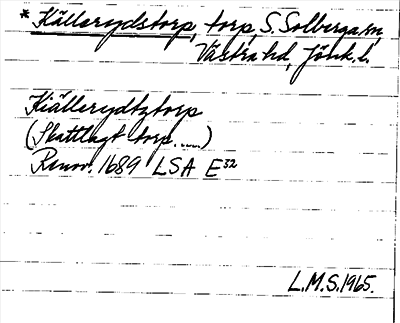 * Källerydstorp, torp, S. Solberga sn,
Västra hd, Jönk. l.
Kiällerydtztorp
(Skattlagt torp. ......)
Renov. 1689 LSA E32
L.M.S. 1965.